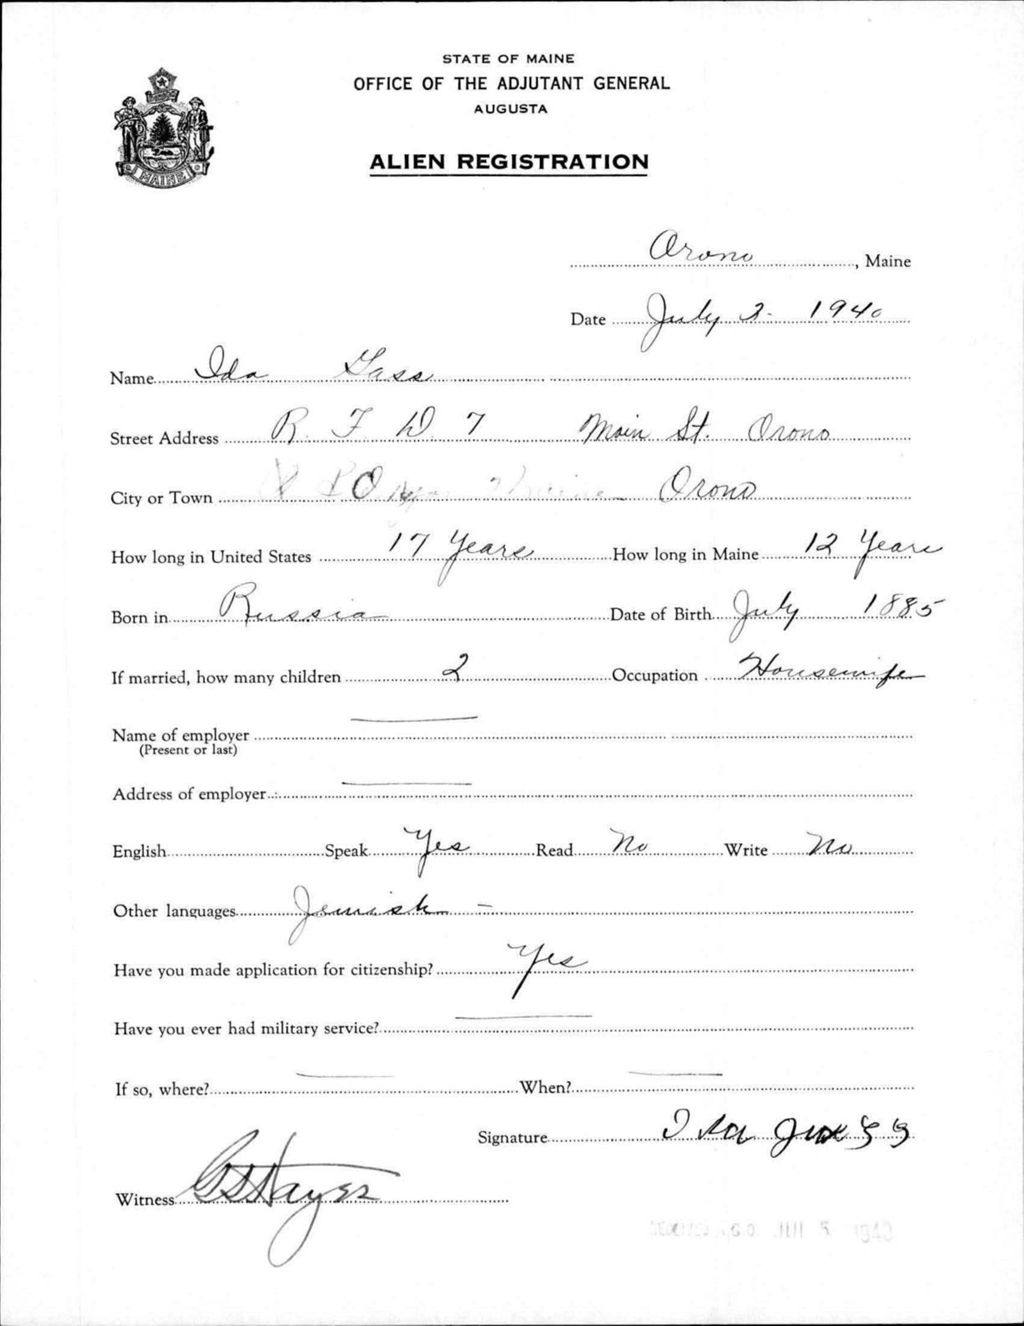 STATE OF MAINE
OFFICE OF THE ADJUTANT GENERAL
AUGUSTA
ALIEN REGISTRATION
MAINE
Orono, Maine
Date July 2- 1940
Name Ida Gass
Street Address R. F. D. 7 Main St. Orono
City or Town Orono
How long in United States 17 Years How long in Maine 12 Years
Born in Russia Date of Birth July 1885
If married, how many children 2 Occupation Housewife
Name of employer
(Present or last)
Address of employer
English Speak Yes Read No Write No
Other languages Jewish -
Have you made application for citizenship? Yes
Have you ever had military service?
If so, where? When?
Signature Ida
Witness Hayes
JUL 5 1940